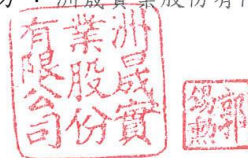 洲晟實業股份有限
洲晟實
業股份
有限公司
郭